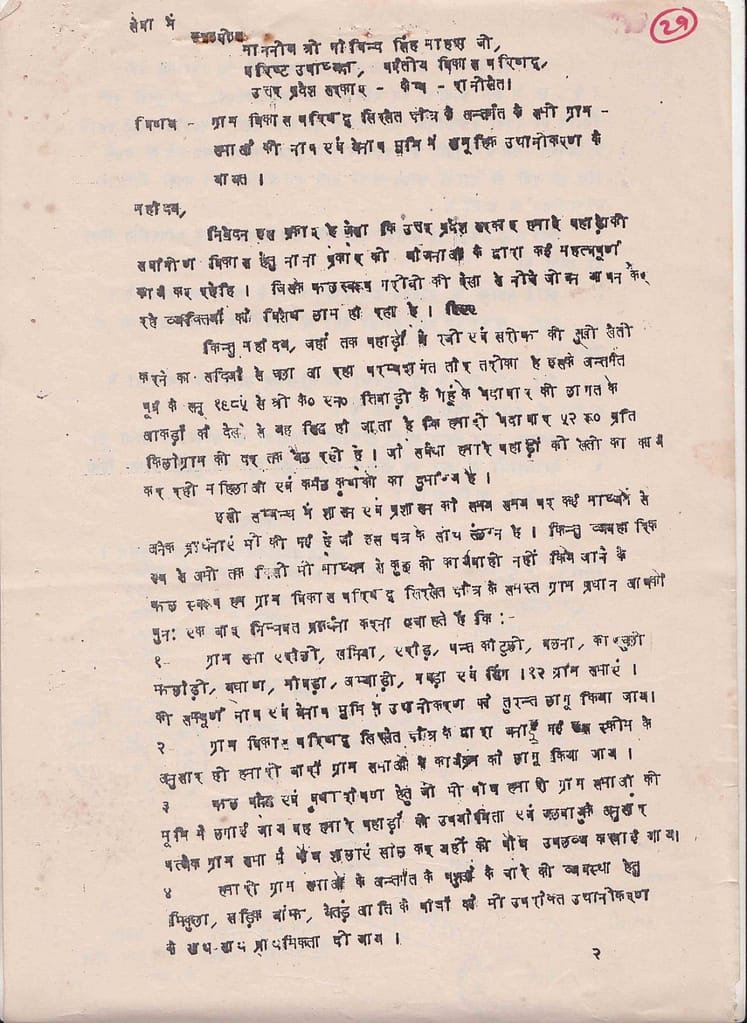 सेवा में
२९
माननीय श्री गोविन्द सिंह माहरा जी,
वरिष्ट उपाध्यक्ष, पर्वतीय विकास परिषद्,
उत्तर प्रदेश सरकार - कैम्प - रानीखेत।
विषय - ग्राम विकास परिषद् सिरखेत क्षेत्र के अन्तर्गत के सभी ग्राम -
सभाओं की नाप एवं बेनाप भूमि में सामूहिक उद्यानीकरण के
बावत ।
महोदय,
निवेदन इस प्रकार है जैसा कि उत्तर प्रदेश सरकार हमारे पहाड़ों की
सर्वांगीण विकास हेतु नाना प्रकार की योजनाओं के द्वारा कई महत्वपूर्ण
कार्य कर रही है । जिसके फलस्वरूप गरीबी की रेखा से नीचे जीवन यापन कर
रहे व्यक्तियों को विशेष लाभ हो रहा है ।
किन्तु महोदय, जहां तक पहाड़ों में रबी एवं खरीफ की सूखी खेती
करने का सदियों से चला आ रहा परम्परागत तौर तरीका है इसके अन्तर्गत
पूर्व के सन् १९८५ से श्री के० एन० तिवाड़ी के गेहूं के पैदावार की लागत के
आंकड़ों को देखने से यह सिद्ध हो जाता है कि हमारी पैदावार ५२ रू० प्रति
किलोग्राम की दर तक बैठ रही है । जो सर्वथा हमारे पहाड़ों की खेती का कार्य
कर रही महिलाओं एवं कर्मठ कृषकों का दुर्भाग्य है ।
इसी सम्बन्ध में शासन एवं प्रशासन को समय समय पर कई माध्यमों से
अनेक प्रार्थनाएं भी की गई हैं जो इस पत्र के साथ संलग्न है । किन्तु व्यवहारिक
रूप से अभी तक किसी भी माध्यम से कुछ भी कार्यवाही नहीं किये जाने के
फल स्वरूप हम ग्राम विकास परिषद् सिरखेत क्षेत्र के समस्त ग्राम प्रधान आपको
पुनः एक बार निम्नवत प्रार्थना करना चाहते हैं कि :-
१ ग्राम सभा
एवं १२ ग्राम सभाएं ।
की सम्पूर्ण नाप एवं बेनाप भूमि में उद्यानीकरण को तुरन्त लागू किया जाय।
२ ग्राम विकास परिषद् सिरखेत क्षेत्र के द्वारा बनाई गई स्कीम के
अनुसार ही हमारी बारों ग्राम सभाओं में कार्यक्रम को लागू किया जाय ।
३ फल पौध एवं वृक्षारोपण हेतु जो भी पौध हमारी ग्राम सभाओं की
भूमि में लगाई जाय वह हमारे पहाड़ों की उपयोगिता एवं जलवायु के अनुसार
प्रत्येक ग्राम सभा में पौध शालाएं खोल कर यहीं की पौध उपलब्ध कराई जाय।
४ हमारी ग्राम सभाओं के अन्तर्गत के पशुओं के चारे की व्यवस्था हेतु
भिमुला, खड़िक बांज, आदि के पौधों को भी उपरोक्त उद्यानीकरण
के साथ-साथ प्राथमिकता दी जाय ।
२